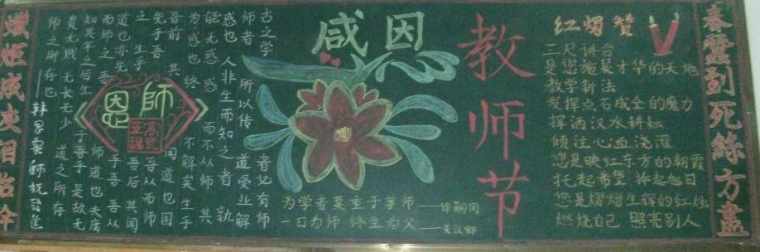 春蚕到死絲方盡
感恩
教师节
红烛赞
三尺讲台
是您施展才华的天地
教学新法
发挥点石成金的魔力
挥洒汗水耕耘
倾注心血浇灌
您是映红东方的朝霞
托起希望
您是熠熠生辉的红烛
燃烧自己 照亮别人
为学者莫重于尊师
一日为师 终生为父 ——关汉卿
古之学者必有师
师者 所以传道受业解
惑也 人非生而知之者 孰
能无惑 惑而不从师 其
为惑也 终不解矣 生乎
吾前 其闻道也固
先乎吾 吾从而师
之 生乎吾后 其闻
道也亦先乎吾 吾从
而师之 吾师道也 夫庸
知其年之先后生于吾乎 是故无
贵无贱 无长无少 道之所存
师之所存也
恩師
成灰泪始